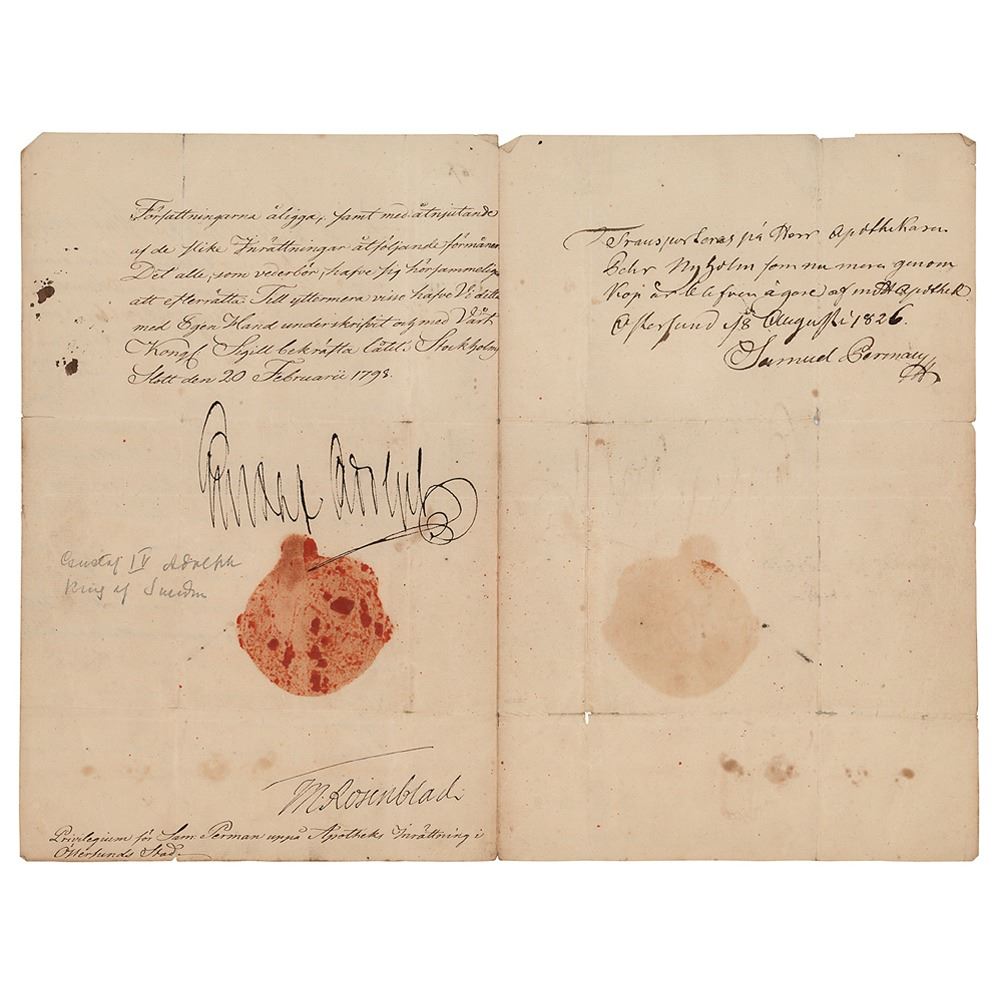 Författningarna åligga, samt med åtnjutande
af de slike Inrättningar åtföljande förmåner.
Det alle, som vederbör, hafve sig hörsammeligen
att efterrätta. Till yttermera visso hafve Vi detta
med Egen Hand underskrifvit och med Vårt
Kongl. Sigill bekräfta låtit. Stockholms
Slott den 20 Februarii 1798.
Gustaf Adolph
Gustaf IV Adolph
King of Sweden
M. Rosenblad.
Privilegium för Sam Perman uppå Apotheks Inrättning i
Östersunds Stad.
Transporteras på Herr Apothekaren
Pehr Nyholm som nu mera genom
Kop är blefven ägare af mitt Apothek.
Östersund d 18 Augusti 1826.
Samuel Perman